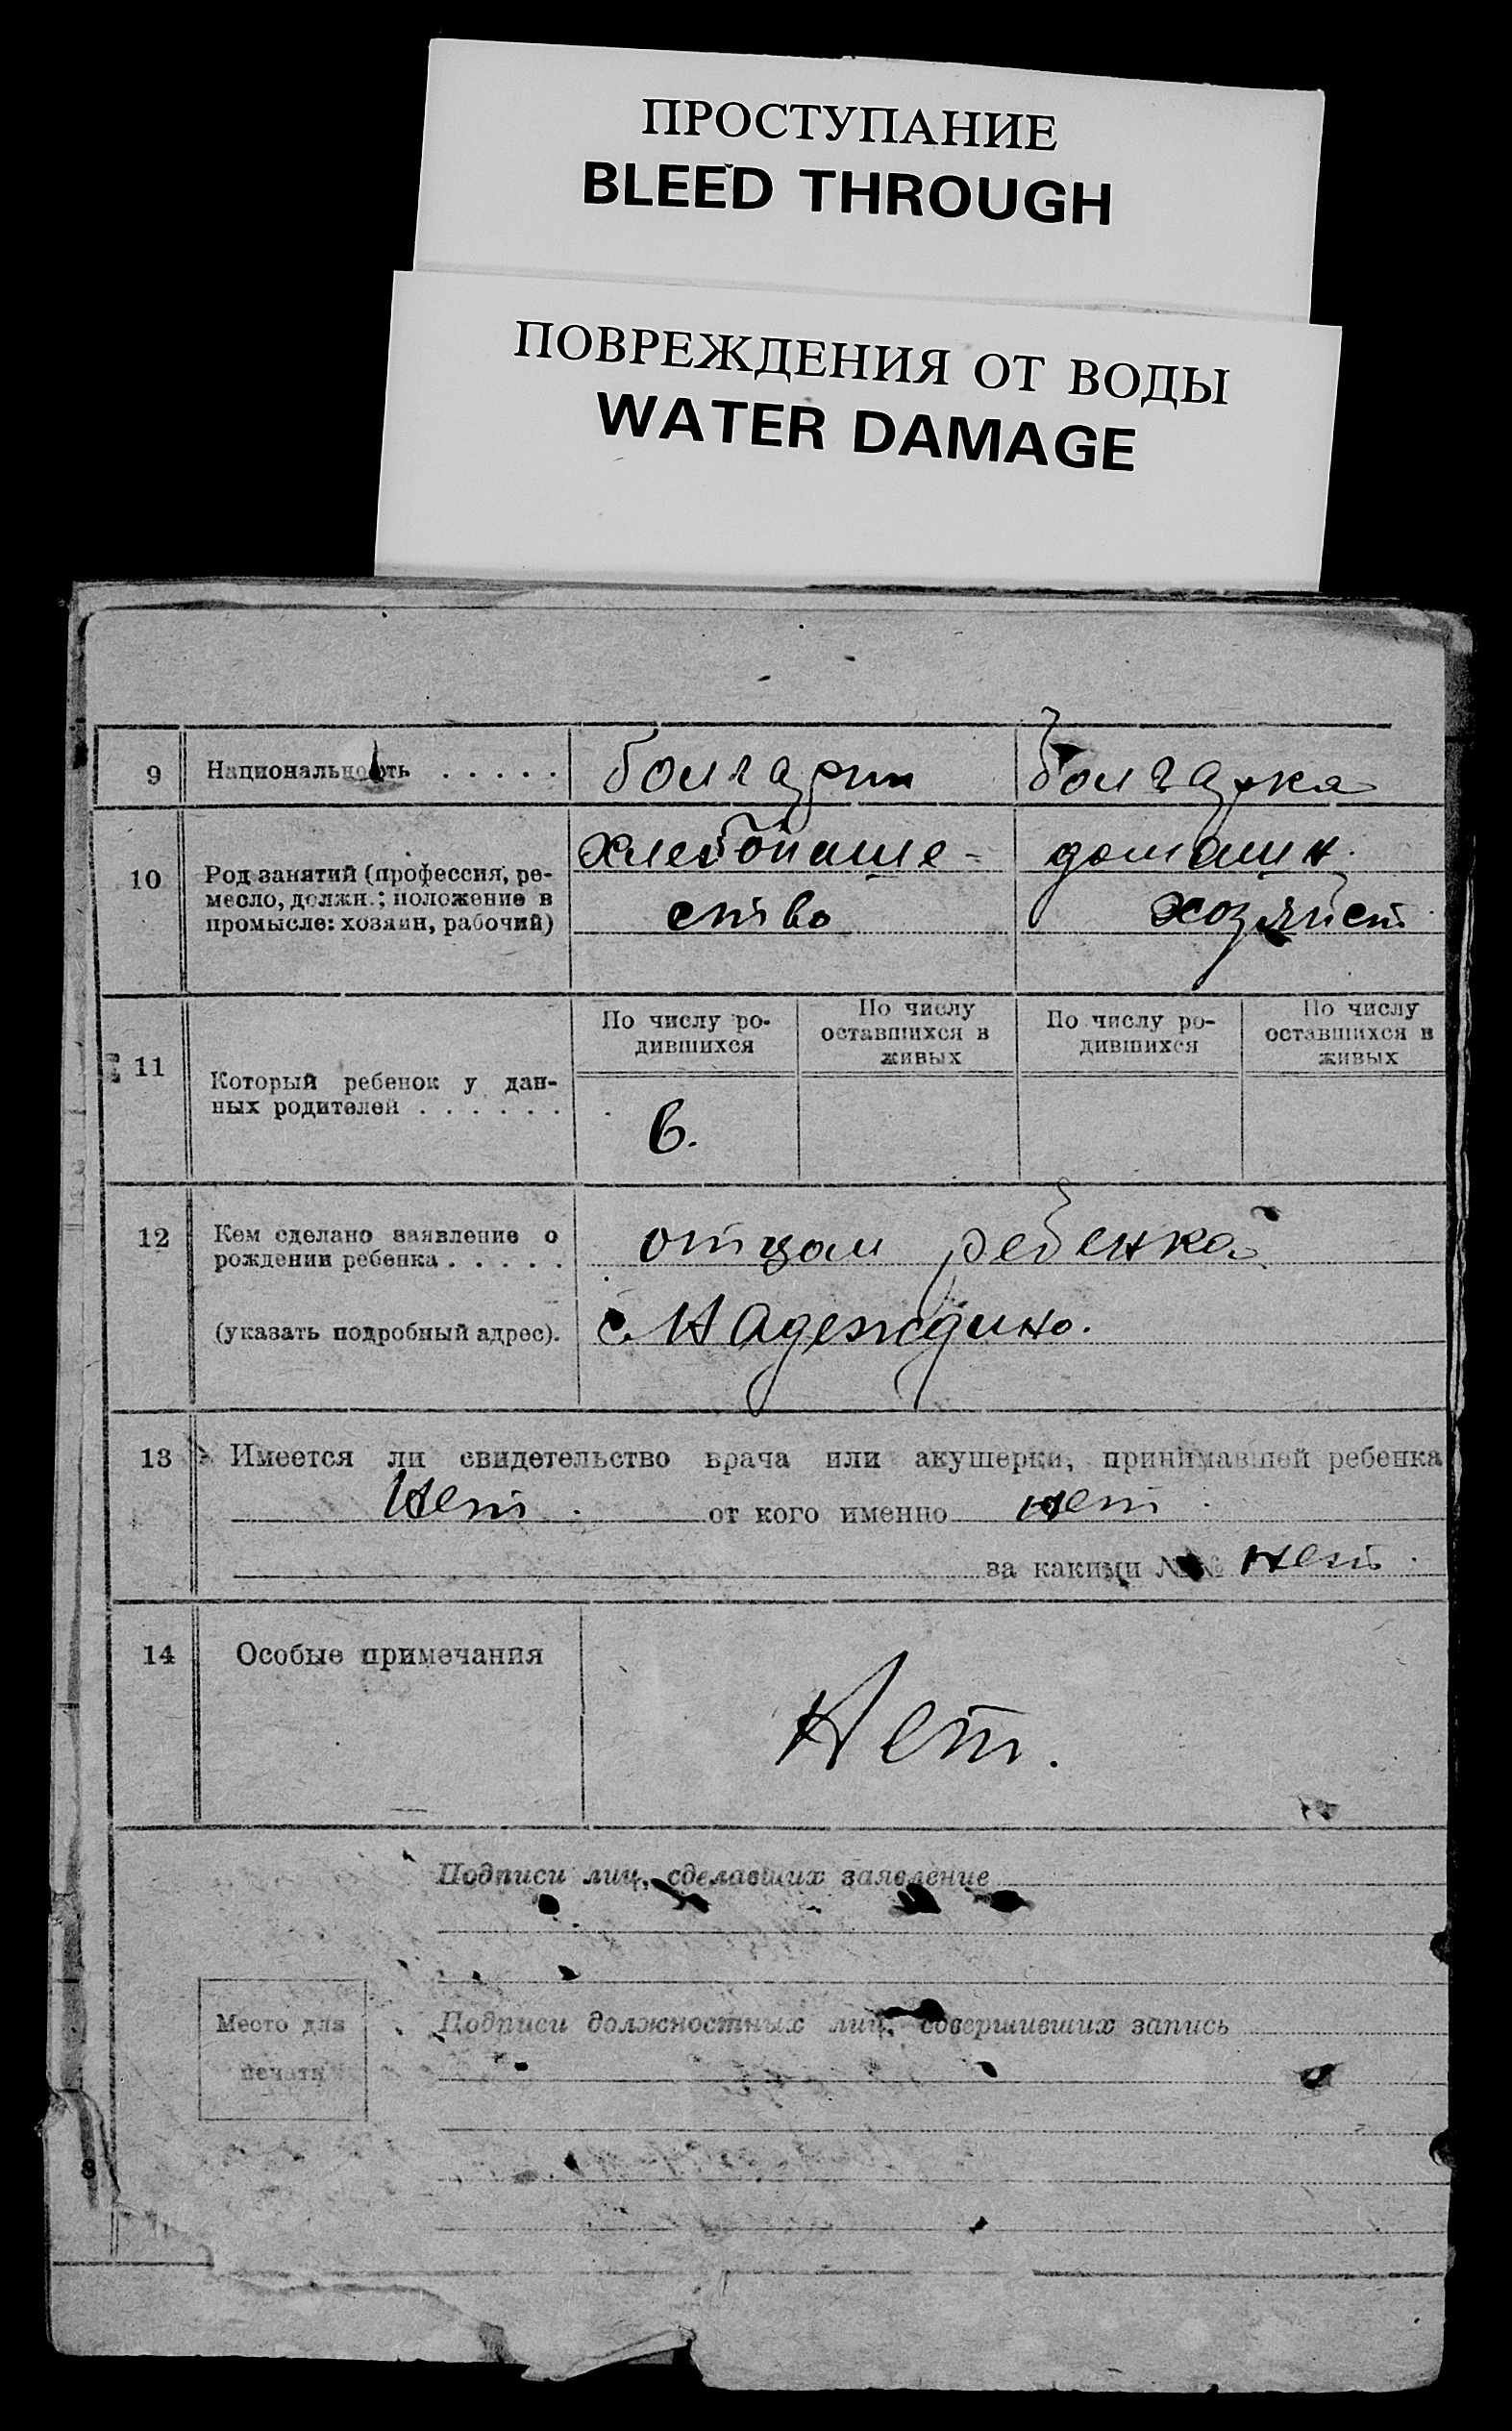 ПРОСТУПАНИЕ
BLEED THROUGH
ПОВРЕЖДЕНИЯ ОТ ВОДЫ
WATER DAMAGE
9 Национальность . . . . . болгарин болгарка
10 Род занятий (профессия, ре-
месло, должн.; положение в
промысле: хозяин, рабочий)
хлебопаше-
ство
домашн.
хозяйст.
11 Который ребенок у дан-
ных родителей . . . . . .
По числу ро-
дившихся
По числу
оставшихся в
живых
По числу ро-
дившихся
По числу
оставшихся в
живых
6.
12 Кем сделано заявление о
рождении ребенка . . . . .
(указать подробный адрес).
отцом ребенка
с. Надеждино.
13 Имеется ли свидетельство врача или акушерки, принимавшей ребенка
Нет. от кого именно нет.
за какими №№ нет.
14 Особые примечания
Нет.
Подписи лиц, сделавших заявление
Место для
печати
Подписи должностных лиц, совершивших запись